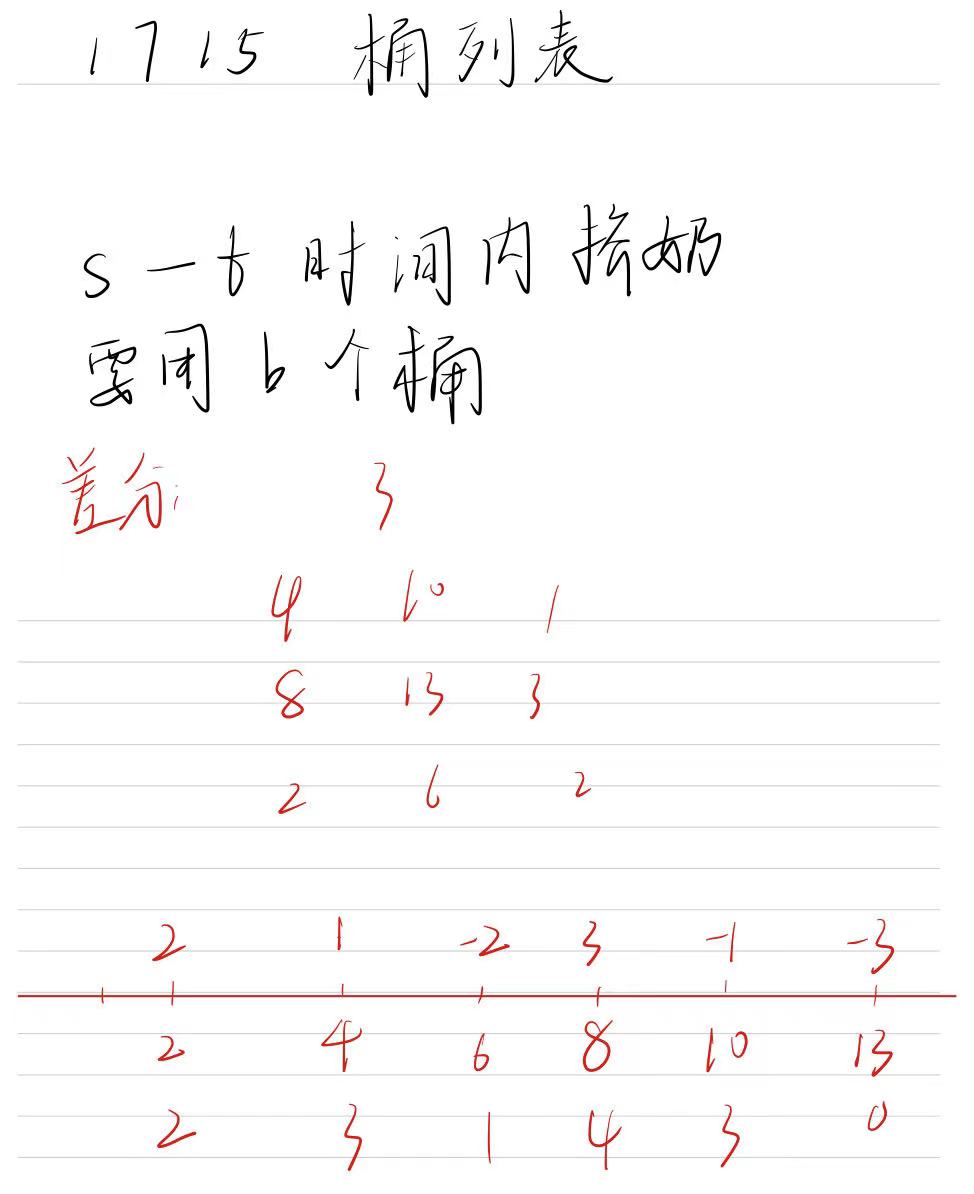 1715 桶列表
s-t时间内挤奶
要用b个桶
差分: 3
4 10 1
8 13 3
2 6 2
2 1 -2 3 -1 -3
2 4 6 8 10 13
2 3 1 4 3 0